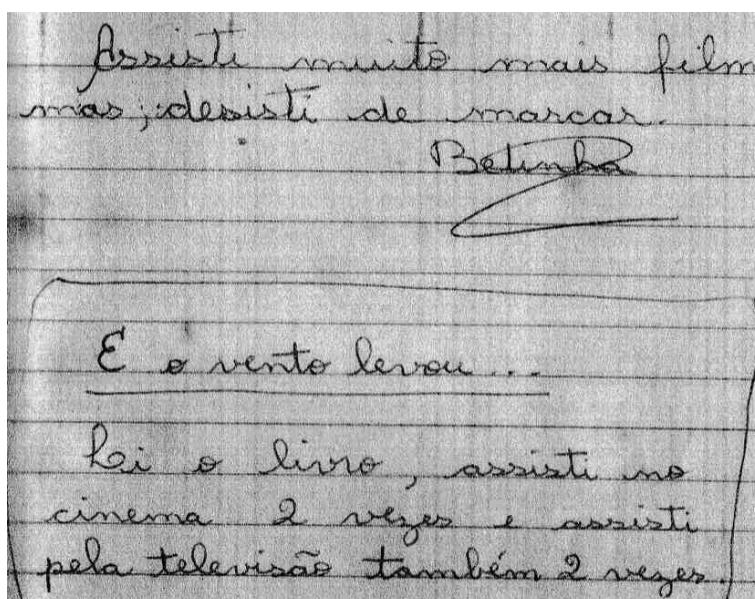 Assisti muito mais film
mas; desisti de marcar.
Betinha
E o vento levou...
Li o livro, assisti no
cinema 2 vezes e assisti
pela televisão também 2 vezes.